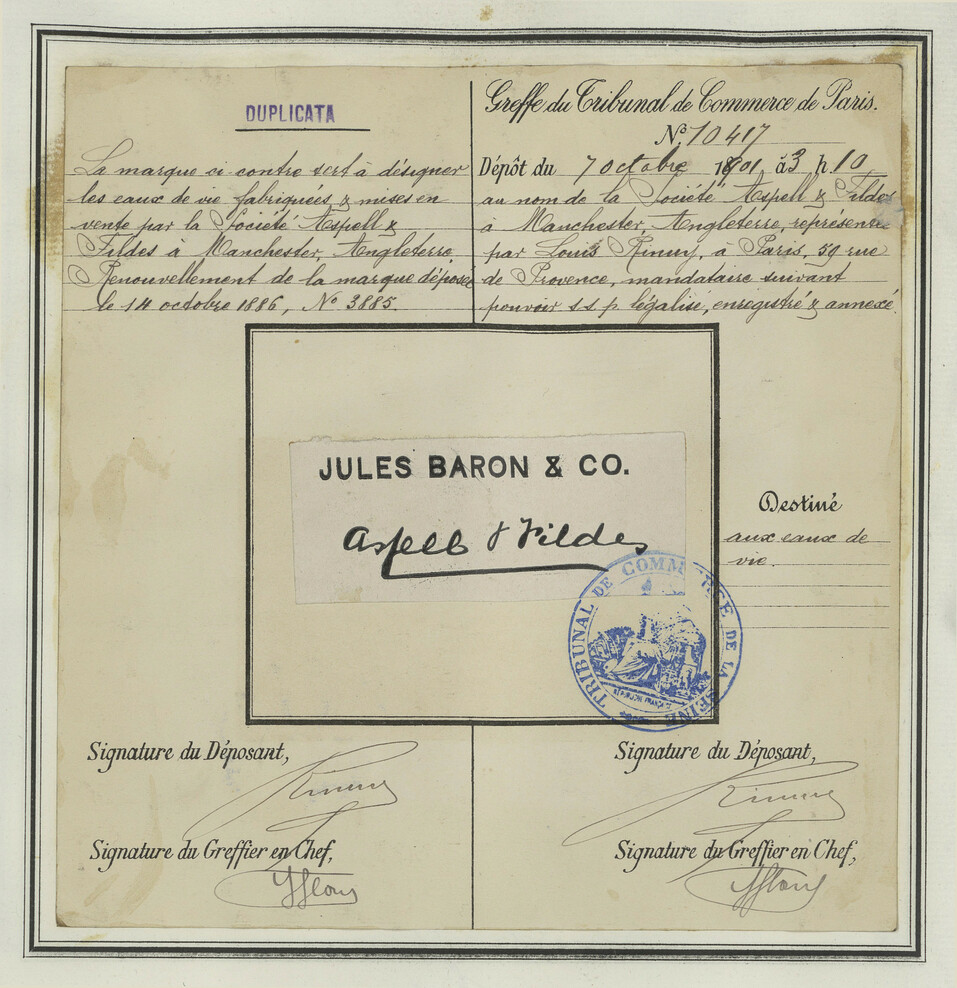 DUPLICATA
La marque ci-contre sert à désigner
les eaux de vie fabriquées & mises en
vente par la Société Aspell &
Fildes à Manchester, Angleterre.
Renouvellement de la marque déposée
le 14 octobre 1886, No 3885.
Greffe du Tribunal de Commerce de Paris.
No 10417
Dépôt du 7 octobre 1901 à 3 h 10
au nom de la Société Aspell & Fildes
à Manchester, Angleterre, représentée
par Louis à Paris, 59 rue
de Provence, mandataire suivant
pouvoir s.s.p. légalisé, enregistré & annexé.
JULES BARON & CO.
Aspell & Fildes
Destiné
aux eaux de
vie.
TRIBUNAL DE COMMERCE DE LA SEINE
RÉPUBLIQUE FRANÇAISE
Signature du Déposant,
Signature du Greffier en Chef,
Signature du Déposant,
Signature du Greffier en Chef,